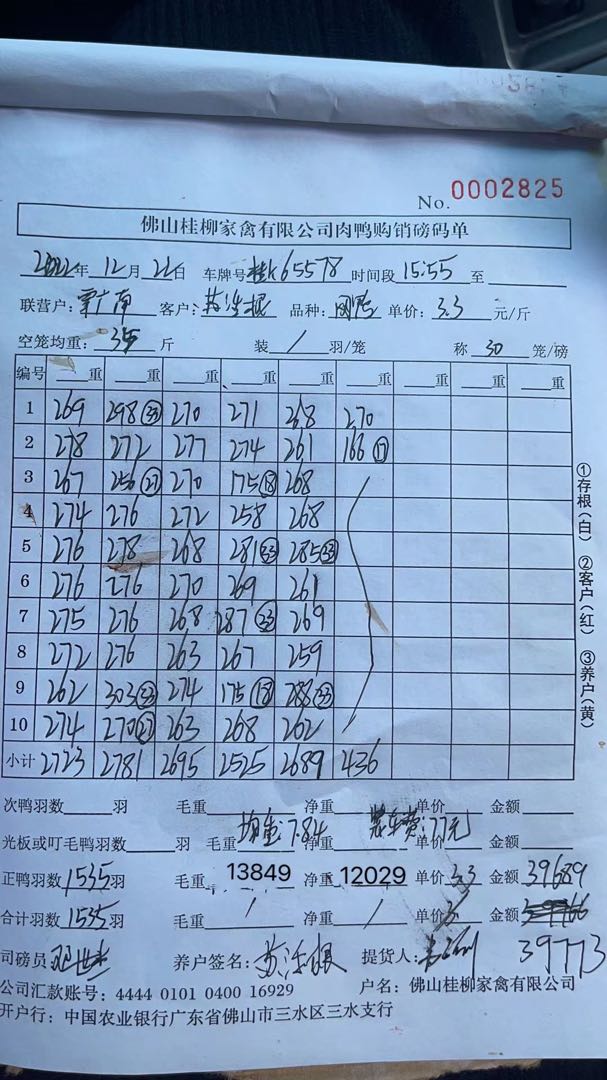 No. 0002825
佛山桂柳家禽有限公司肉鸭购销磅码单
2022年 12月 22日 车牌号 桂K65578 时间段 15:55 至
联营户: 客户: 品种: 单价: 3.3 元/斤
空笼均重: 35 斤 装 / 羽/笼 称 30 笼/磅
编号 重 重 重 重 重 重 重 重 重
1 269 298 ㉝ 270 271 268 270
2 278 272 277 274 261 166 ⑰
3 267 256 ㉗ 270 175 ⑱ 268
4 274 276 272 258 268
5 276 278 268 281 ㉝ 285 ㉝
6 276 276 270 269 261
7 275 276 268 287 ㉝ 269
8 272 276 263 267 259
9 262 303 ㉝ 274 175 ⑱ 288 ㉝
10 274 270 ㉗ 263 268 262
小计 2723 2781 2695 2525 2689 436
①存根(白) ②客户(红) ③养户(黄)
次鸭羽数 羽 毛重 净重 单价 金额
均重:7.84 装车费:77元
光板或叮毛鸭羽数 羽 毛重 净重 单价 金额
正鸭羽数 1535 羽 毛重 13849 净重 12029 单价 3.3 金额 39689
合计羽数 1535 羽 毛重 / 净重 / 单价 金额
39773
司磅员 养户签名: 提货人:
公司汇款账号: 4444 0101 0400 16929 户名: 佛山桂柳家禽有限公司
开户行: 中国农业银行广东省佛山市三水区三水支行